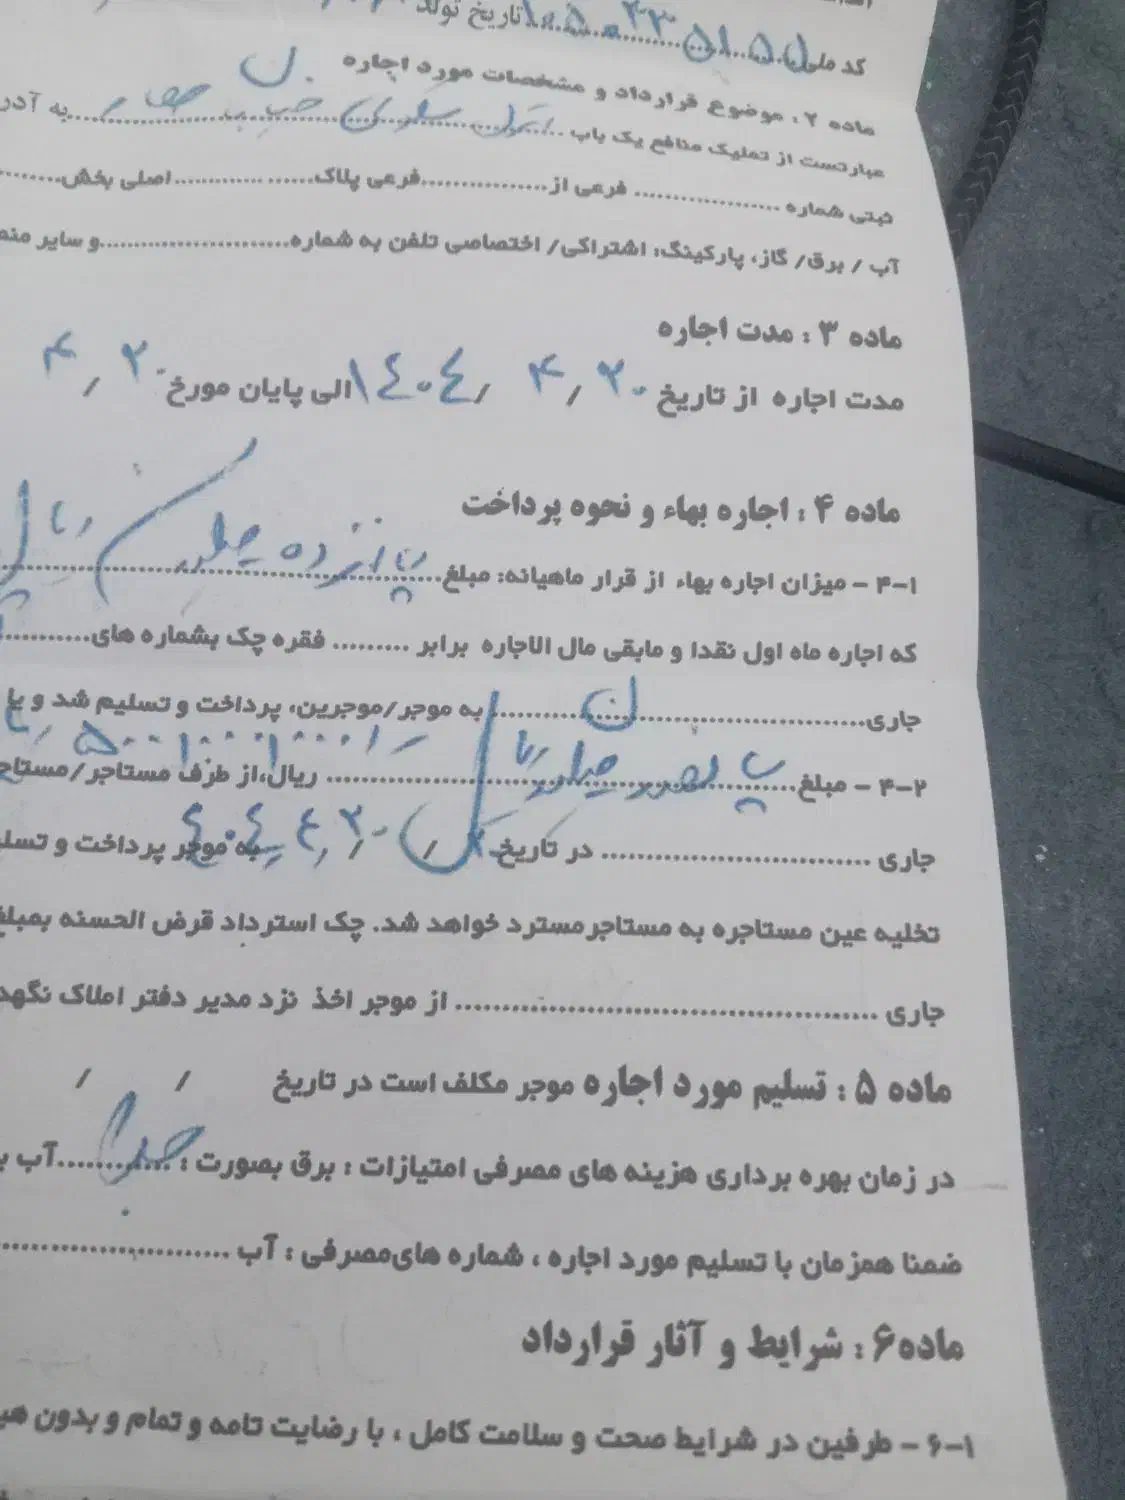 کد ملی ............ تاریخ تولد
ماده ۲ : موضوع قرارداد و مشخصات مورد اجاره
عبارتست از تملیک منافع یک باب ............ به آدر
ثبتی شماره ............ فرعی از ............ فرعی پلاک ............ اصلی بخش............
آب / برق/ گاز، پارکینگ: اشتراکی/ اختصاصی تلفن به شماره............ و سایر من
ماده ۳ : مدت اجاره
مدت اجاره از تاریخ ۲۰ / ۴ / ۱۴۰۴ الی پایان مورخ ۲۰ / ۴
ماده ۴ : اجاره بهاء و نحوه پرداخت
۴-۱ - میزان اجاره بهاء از قرار ماهیانه: مبلغ............ پانزده میلیون ریال
که اجاره ماه اول نقدا و مابقی مال الاجاره برابر ......... فقره چک بشماره های............
جاری............ به موجر/موجرین، پرداخت و تسلیم شد و یا
۴-۲ - مبلغ............ پانصد میلیون ریال ............ ریال،از طرف مستاجر/مستاج
جاری ............ در تاریخ ۲۰ / ۴ / ۴۰۴ به موجر پرداخت و تسل
تخلیه عین مستاجره به مستاجرمسترد خواهد شد. چک استرداد قرض الحسنه بمبلغ
جاری ............ از موجر اخذ نزد مدیر دفتر املاک نگهد
ماده ۵ : تسلیم مورد اجاره موجر مکلف است در تاریخ / /
در زمان بهره برداری هزینه های مصرفی امتیازات : برق بصورت : ............ آب ب
ضمنا همزمان با تسلیم مورد اجاره ، شماره های‌مصرفی : آب ............
ماده۶ : شرایط و آثار قرارداد
۶-۱ - طرفین در شرایط صحت و سلامت کامل ، با رضایت تامه و تمام و بدون هی